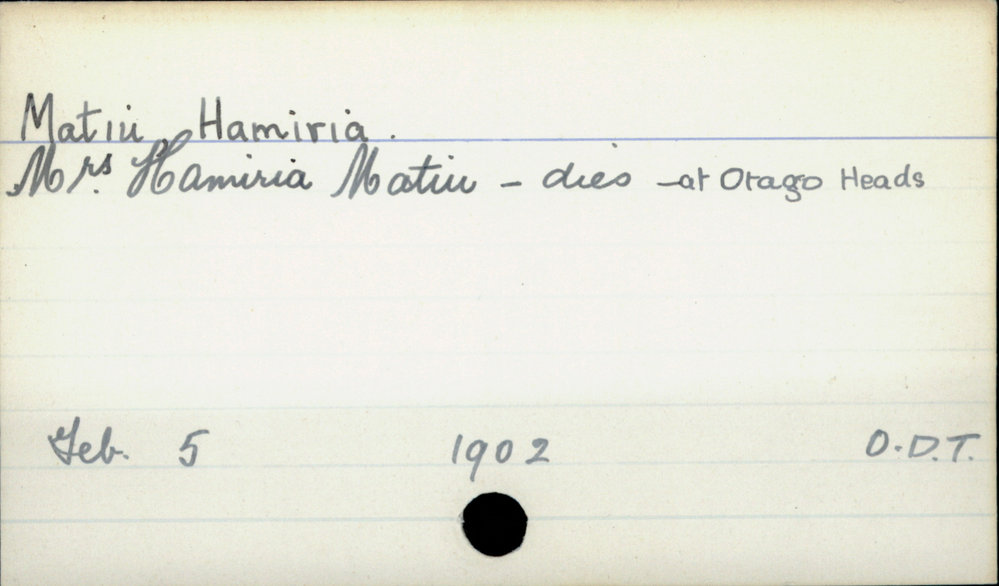 Matiu, Hamiria.
Mrs. Hamiria Matiu - dies - at Otago Heads
Feb. 5 1902 O.D.T.